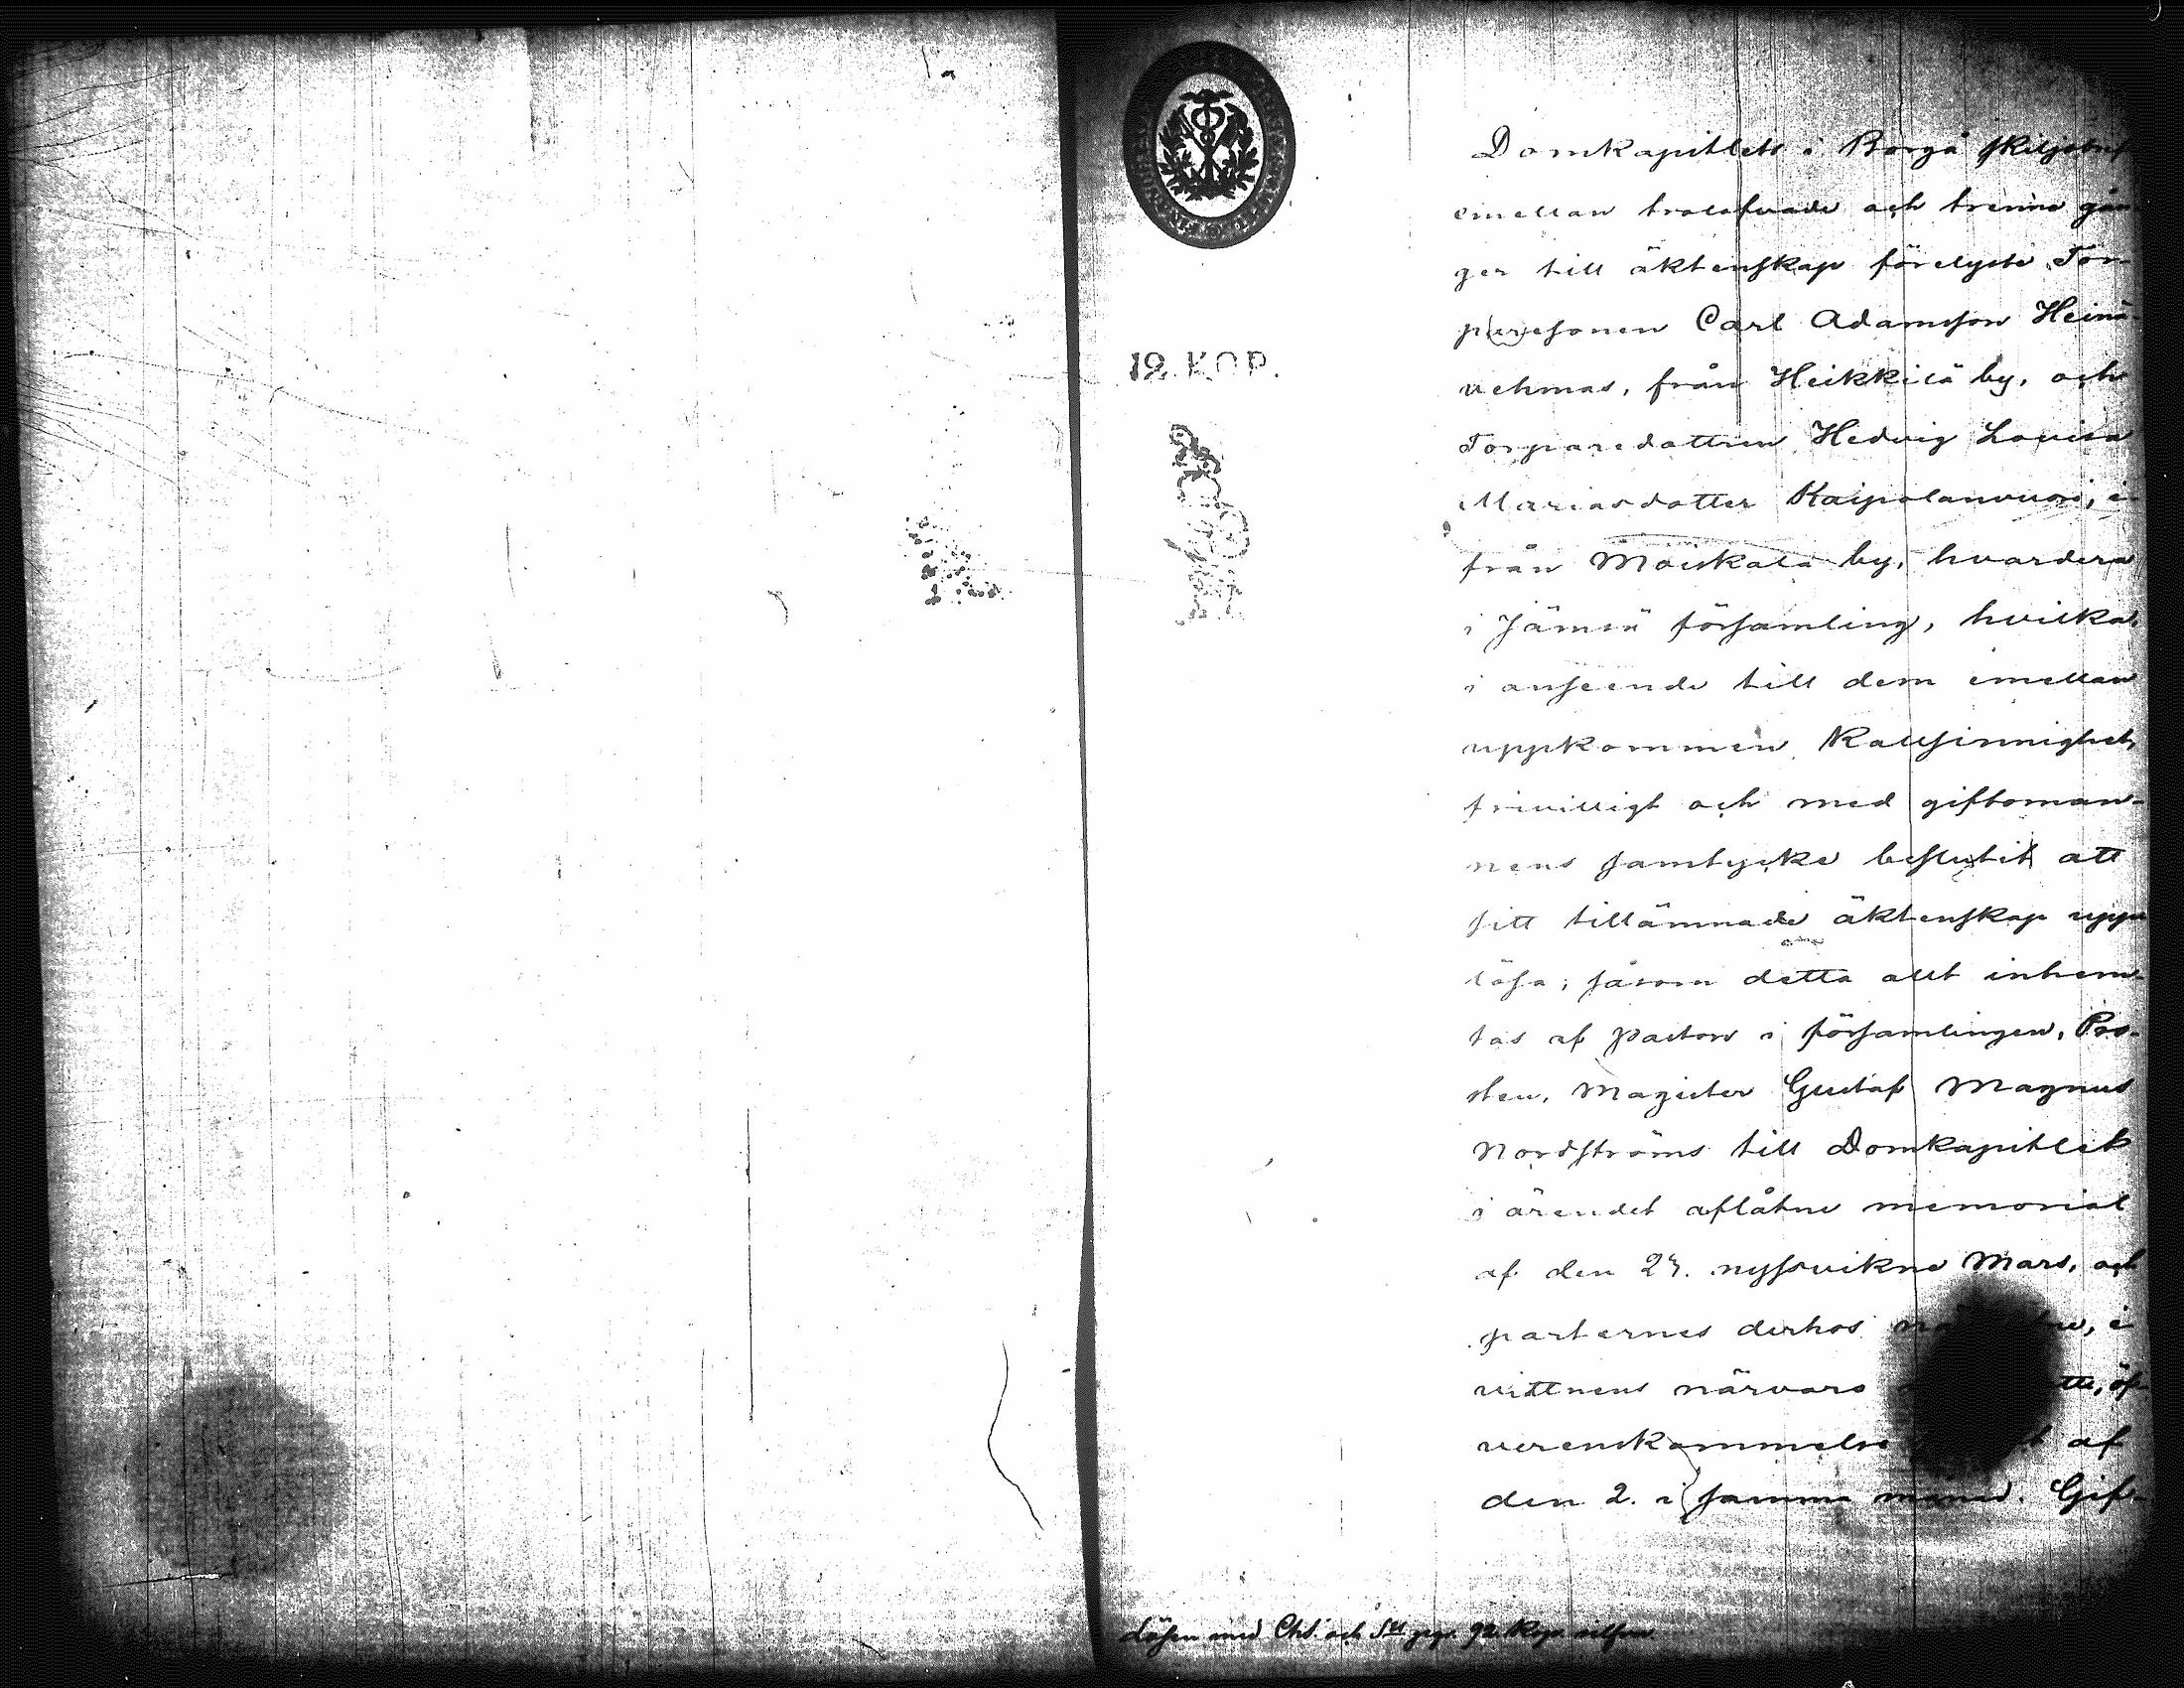 12. KOP.
Domkapitlets i Borgå skiljobref
emellan trolofvade och trenne gån-
ger till äktenskap förelyste Tor-
paresonen Carl Adamsson Heinä-
vehmas, från Heikkilä by, och
Torparedottren Hedvig Lovisa
Mariasdotter Kaipolanvuori,
från Moiskala by, hvardera
i Jämsä församling, hvilka,
i anseende till dem emellan
uppkommen kallsinnighet,
frivilligt och med giftoman-
nens samtycke beslutit att
sitt tillämnade äktenskap upp-
lösa; såsom detta allt inhem-
tas af Pastors i församlingen, Pro-
sten, Magister Gustaf Magnus
Nordströms till Domkapitlet
i ärendet aflåtne memorial
af den 27. nyssvikne Mars, och
parternes derhos i
vittnens närvaro öf-
verenskommelse af
den 2. i samma månad. Gif-
Lösen med Chs. och 92 Kop. silfver.